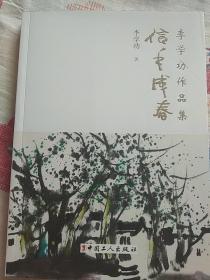 李学功作品集
信手成春
李学功 著
中国工人出版社